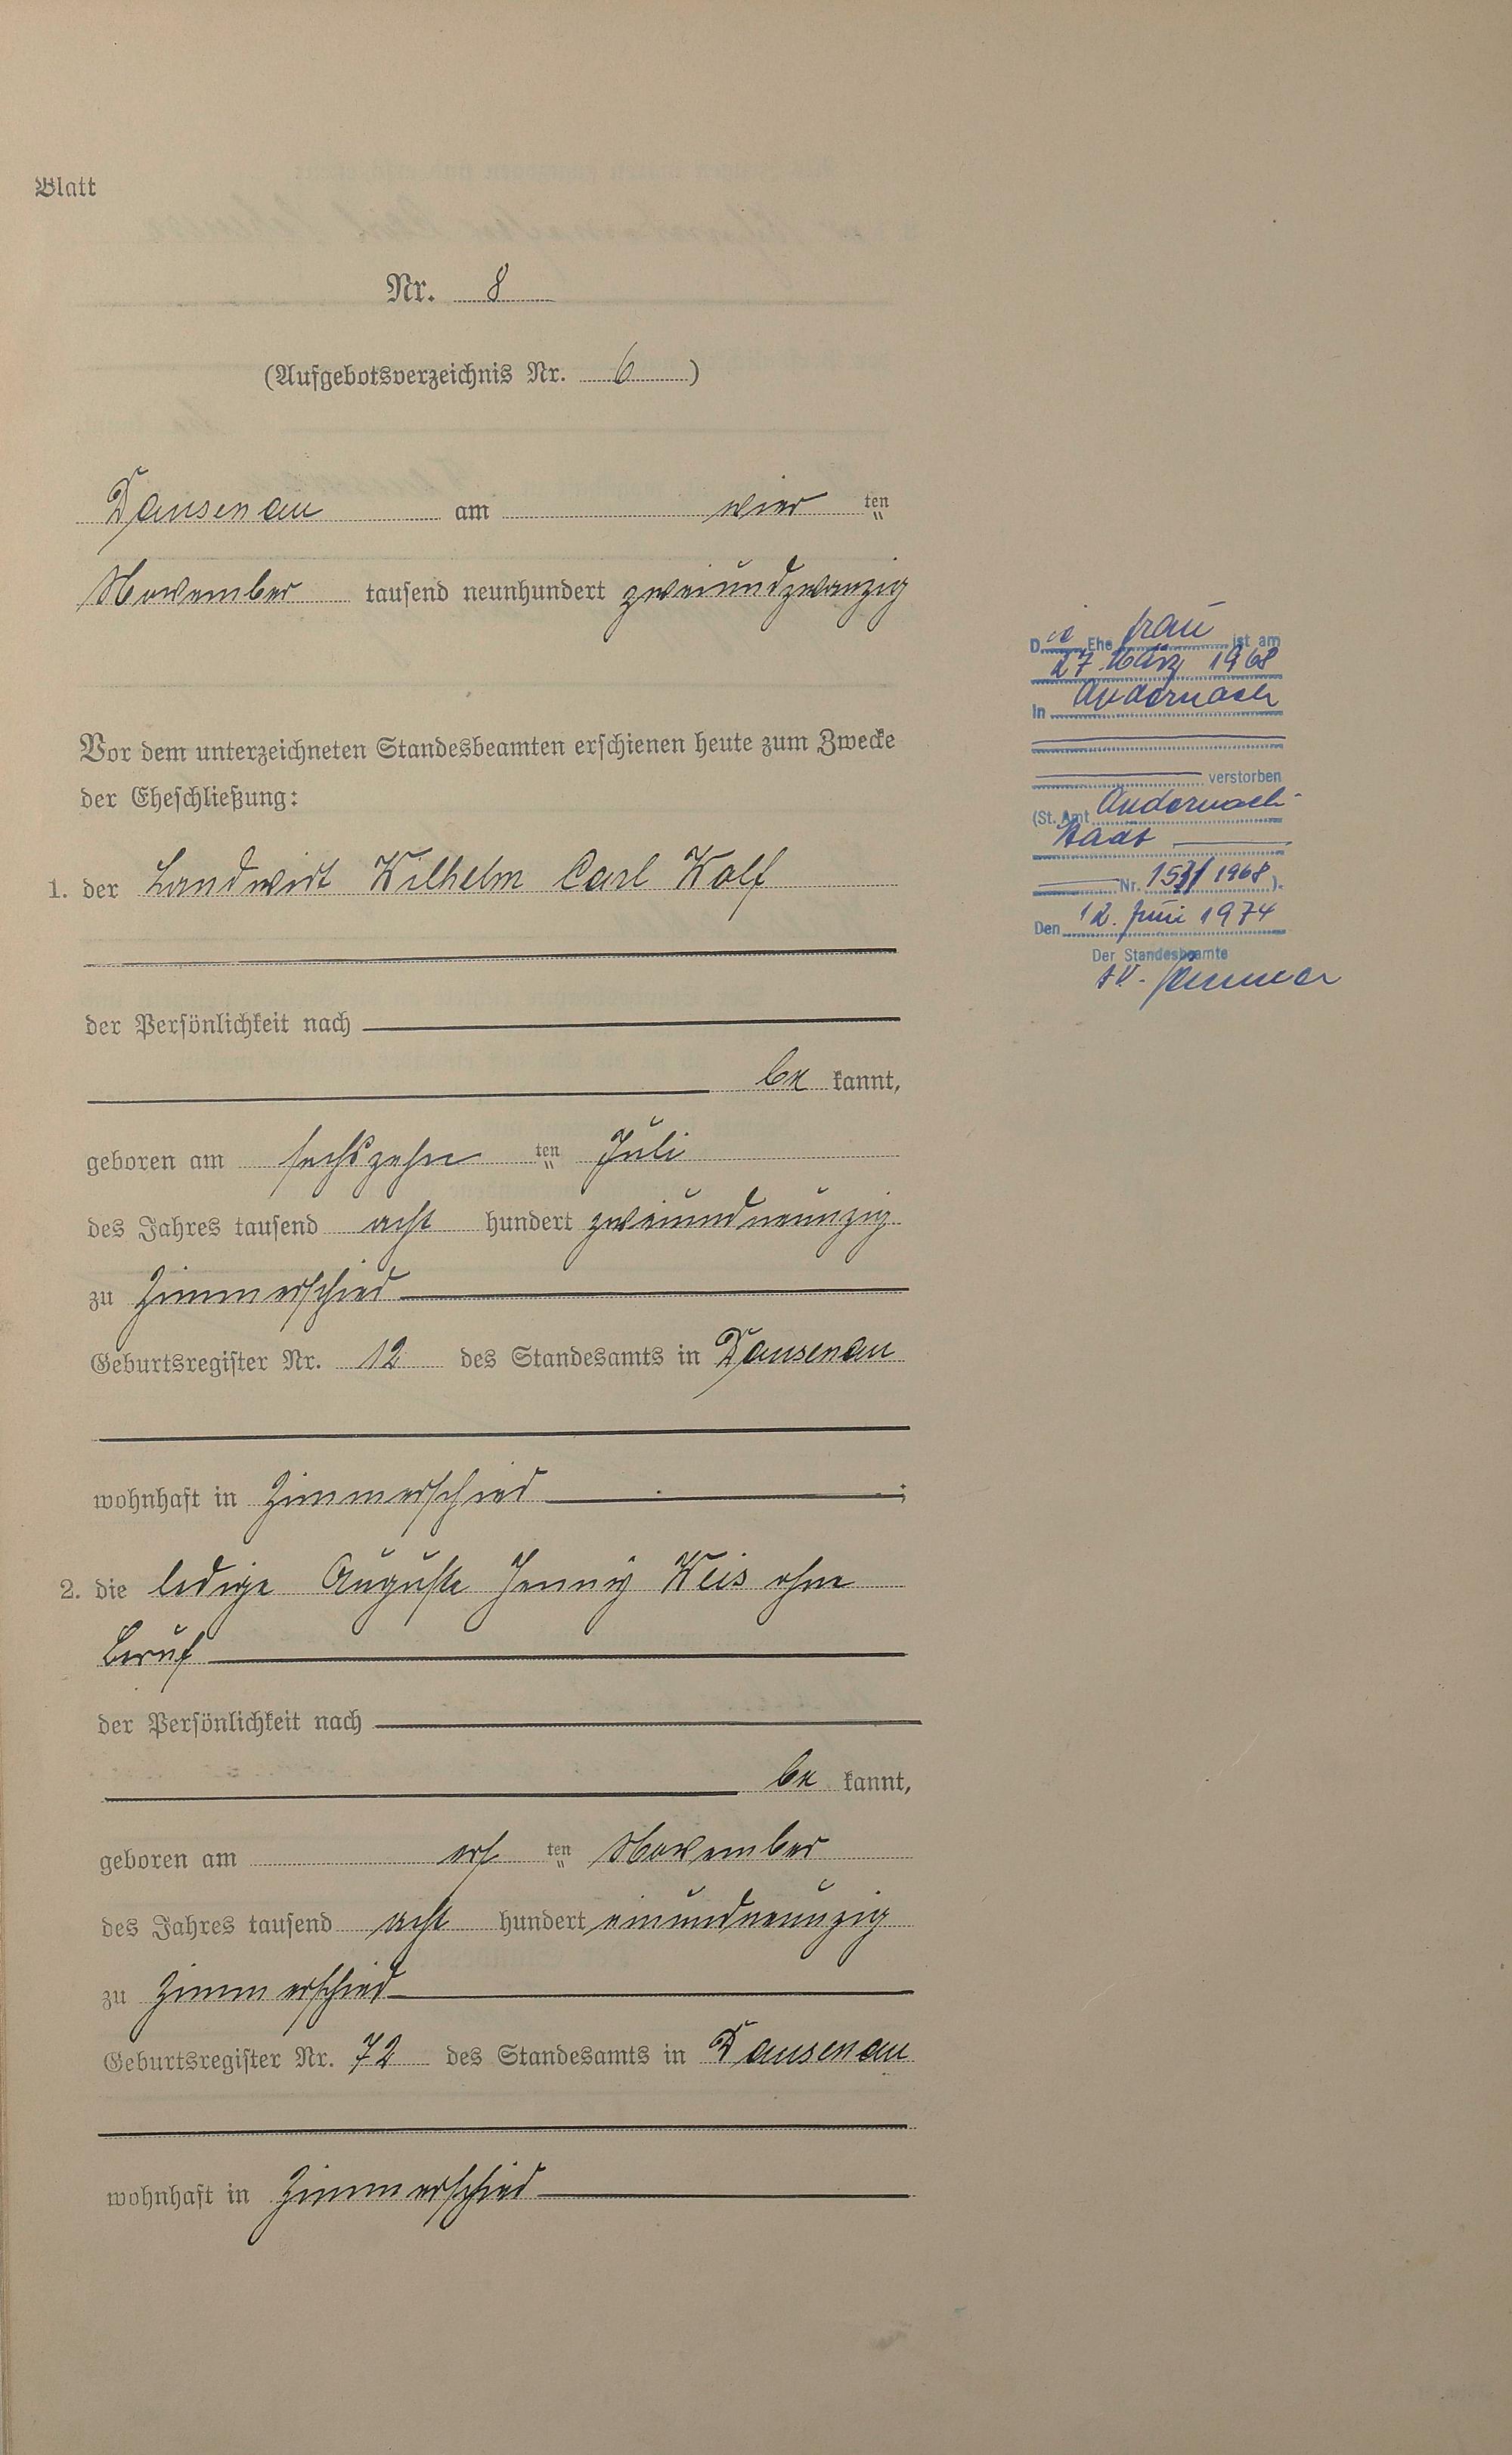 Blatt
Nr. 8
(Aufgebotsverzeichnis Nr. 6)
Dausenau am vier ten
November tausend neunhundert zweiundzwanzig
Vor dem unterzeichneten Standesbeamten erschienen heute zum Zwecke
der Eheschließung:
1. der Landwirt Wilhelm Carl Wolf
der Persönlichkeit nach
be kannt,
geboren am sechszehn ten Juli
des Jahres tausend acht hundert zweiundneunzig
zu Zimmerschied
Geburtsregister Nr. 12 des Standesamts in Dausenau
wohnhaft in Zimmerschied ;
2. die ledige Auguste Jenny Weis ohne
Beruf
der Persönlichkeit nach
be kannt,
geboren am ers ten November
des Jahres tausend acht hundert einundneunzig
zu Zimmerschied
Geburtsregister Nr. 72 des Standesamts in Dausenau
wohnhaft in Zimmerschied
Die Ehefrau ist am
27. März 1968
in Andernach
verstorben
(St. Amt Andernach-
Stadt
Nr. 1968).
Den 12. Juni 1974
Der Standesbeamte